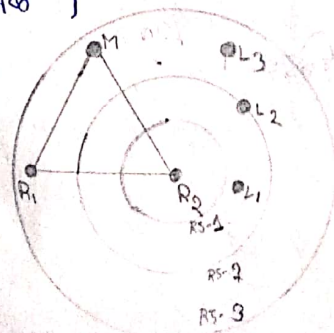 M
L3
L2
R1
R2
L1
RS-1
RS-2
RS-3